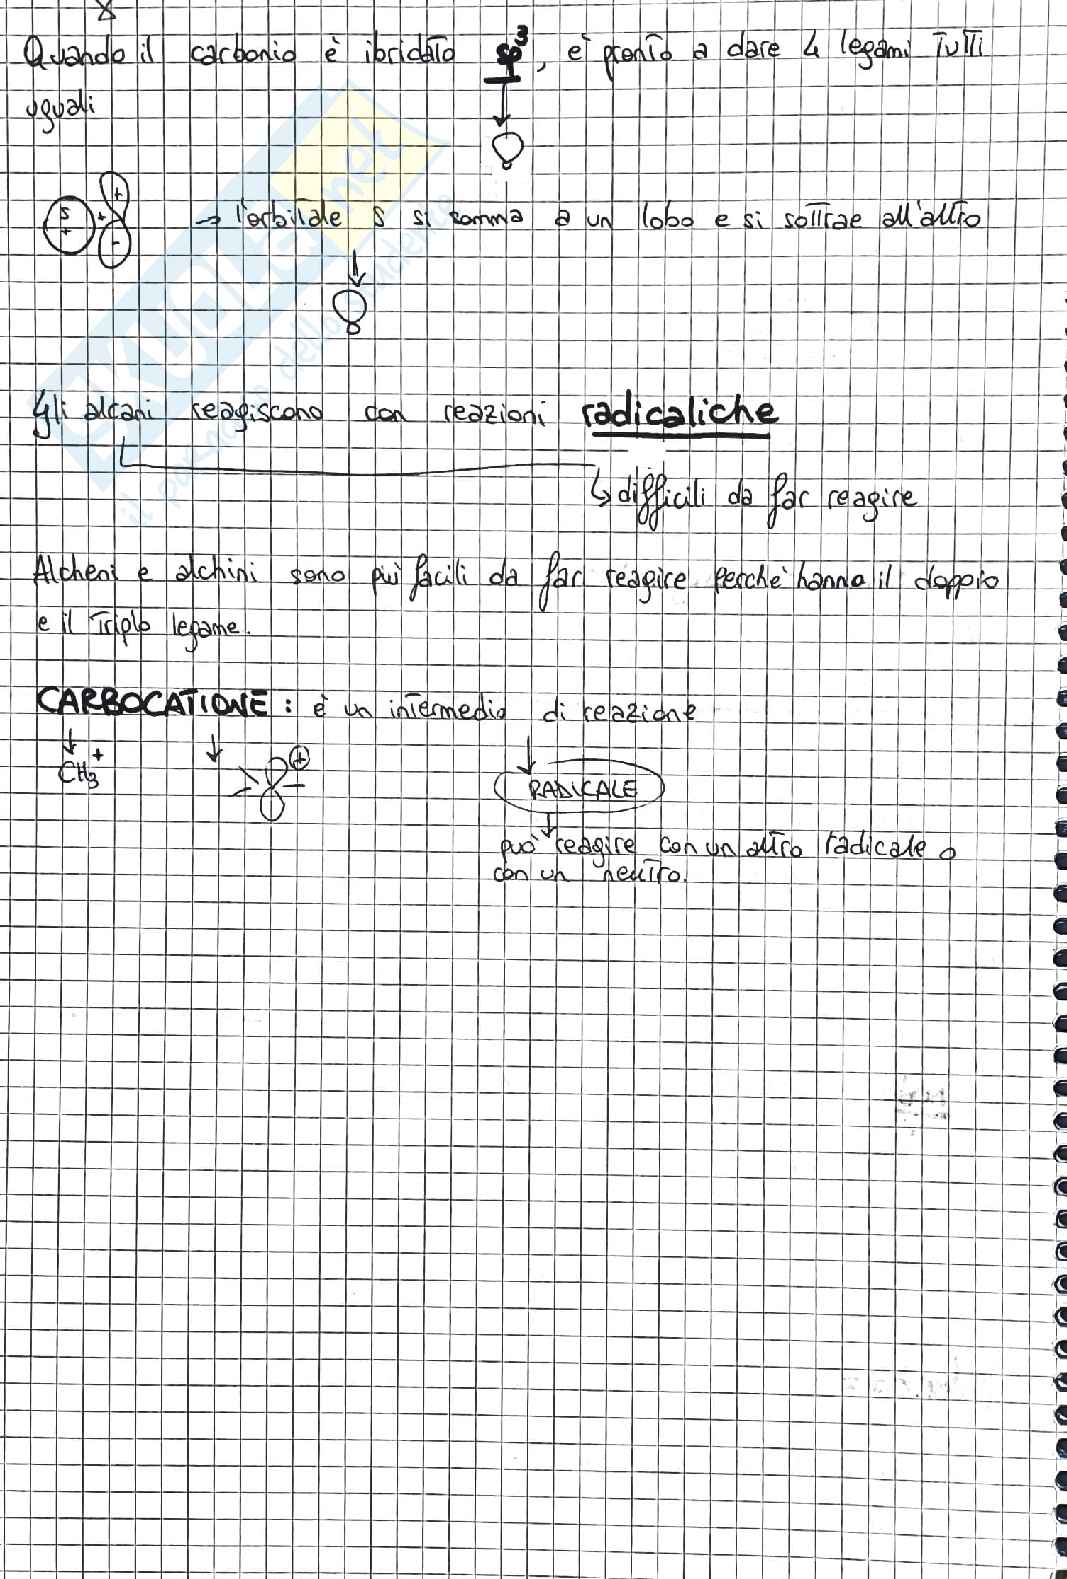 Quando il carbonio è ibridato sp³, è pronto a dare 4 legami tutti
uguali
S
+
+
+
-
→ l'orbitale S si somma a un lobo e si sottrae all'altro
Gli alcani reagiscono con reazioni radicaliche
↳ difficili da far reagire
Alcheni e alchini sono più facili da far reagire perchè hanno il doppio
e il triplo legame.
CARBOCATIONE: è un intermedio di reazione
CH₃⁺
+
RADICALE
può reagire con un altro radicale o
con un neutro.